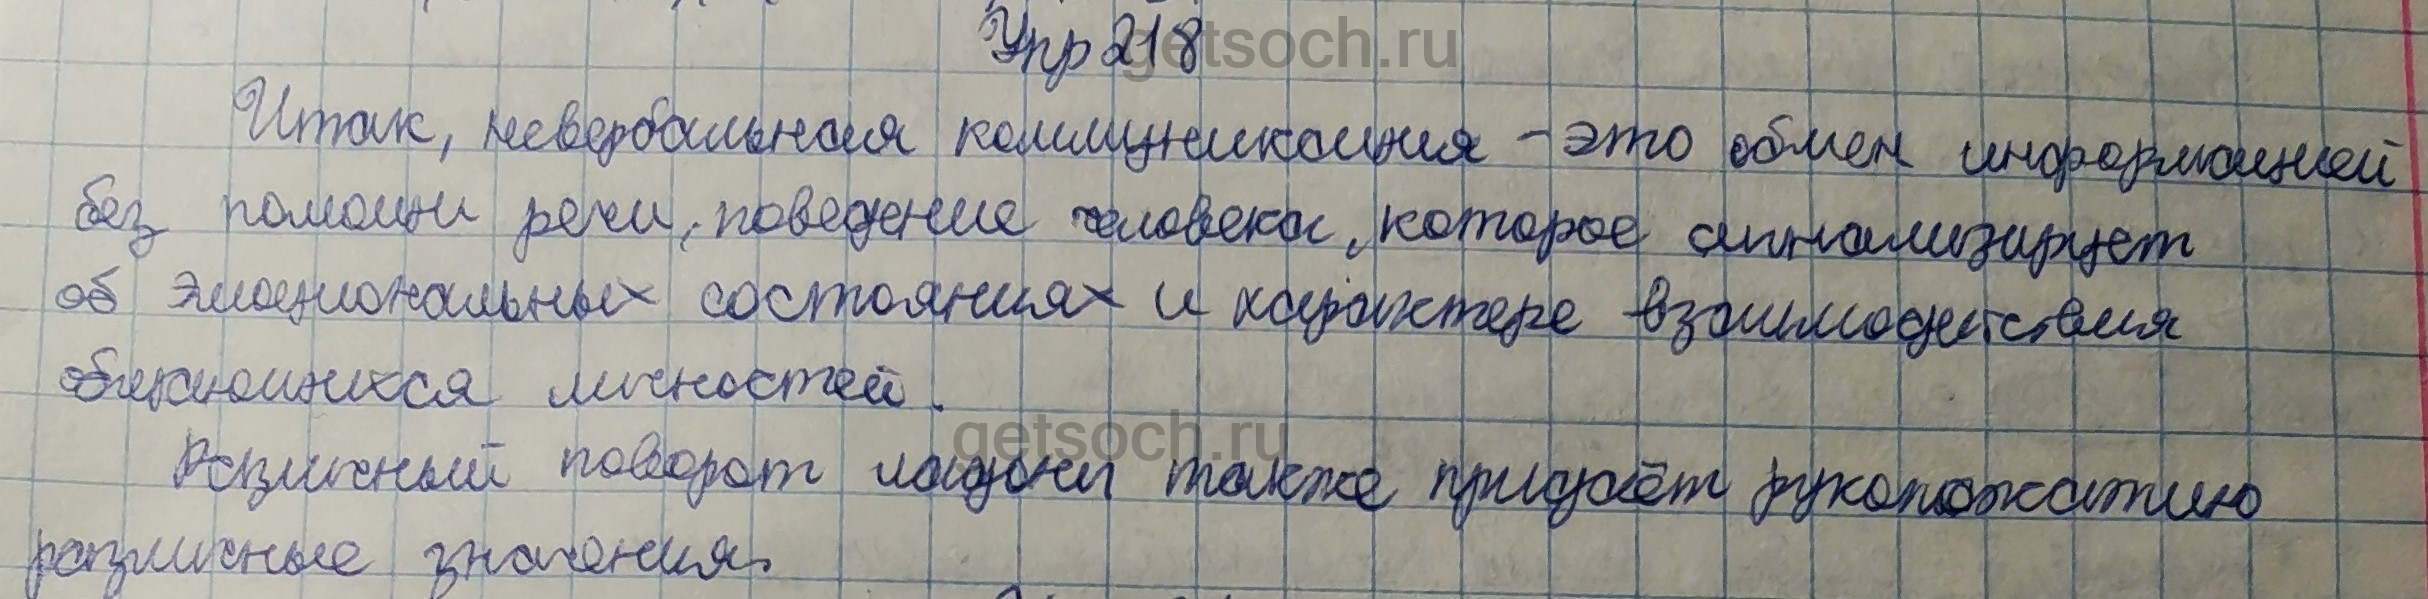 Упр 218
getsoch.ru
Итак, невербальная коммуникация - это обмен информацией
без помощи речи, поведение человека, которое сигнализирует
об эмоциональных состояниях и характере взаимодействия
общающихся личностей.
getsoch.ru
Различный поворот ладони также придаёт рукопожатию
различные значения.